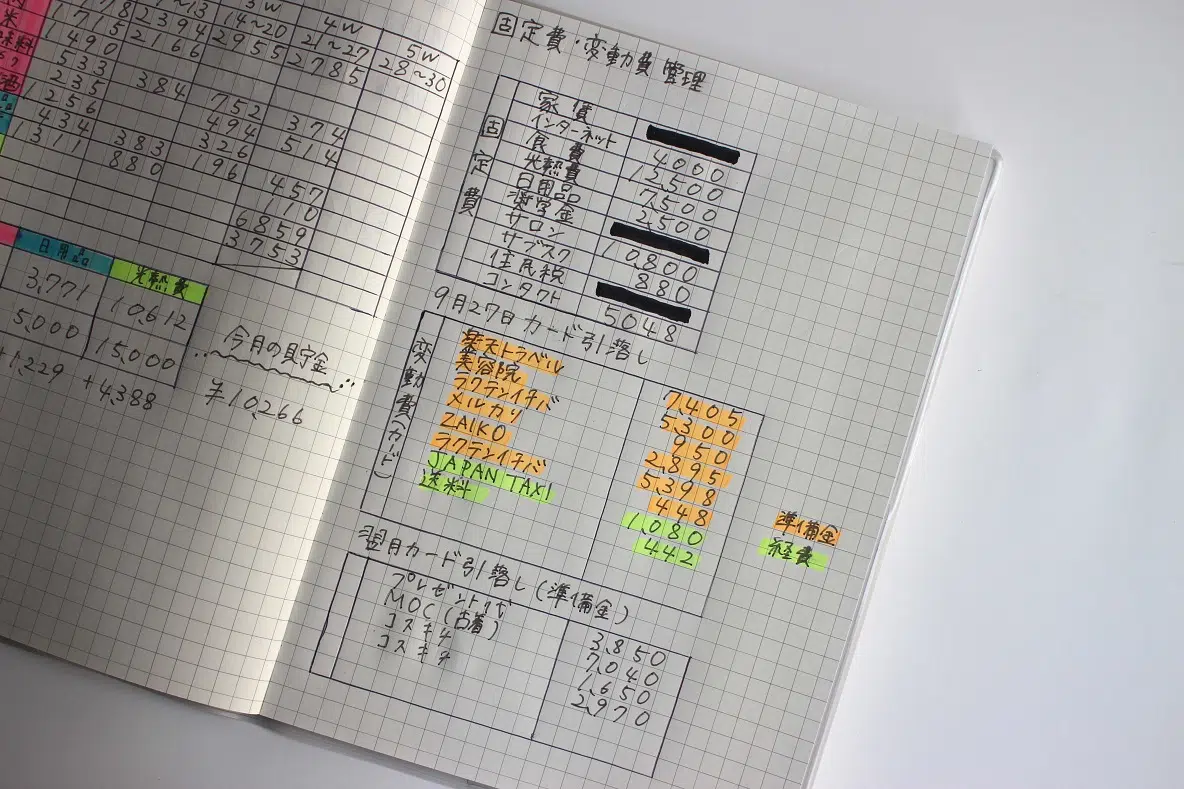 3W
4W
5W
~13
14~20
21~27
28~30
2394
2955
2785
1715
2166
490
533
384
235
752
374
256
494
514
434
383
326
1311
880
196
457
110
6859
3753
日用品
光熱費
3,771
10,612
5,000
15,000
+1,229
+4,388
今月の貯金
¥10,266
固定費・変動費管理
固定費
家賃
インターネット 4000
食費 12,500
光熱費 7,500
日用品 2,500
奨学金
サロン 10,800
サブスク 880
住民税
コンタクト 5048
9月27日カード引落し
変動費(カード)
楽天トラベル 7,405
美容院 5,300
ラクテンイチバ 950
メルカリ 2,895
ZAIKO 5,398
ラクテンイチバ 448
JAPAN TAXI 1,080
送料 442
準備金
経費
翌月カード引落し(準備金)
プレゼント代 3,850
MOC(古着) 7,040
コスキチ 1,650
コスキチ 2,970